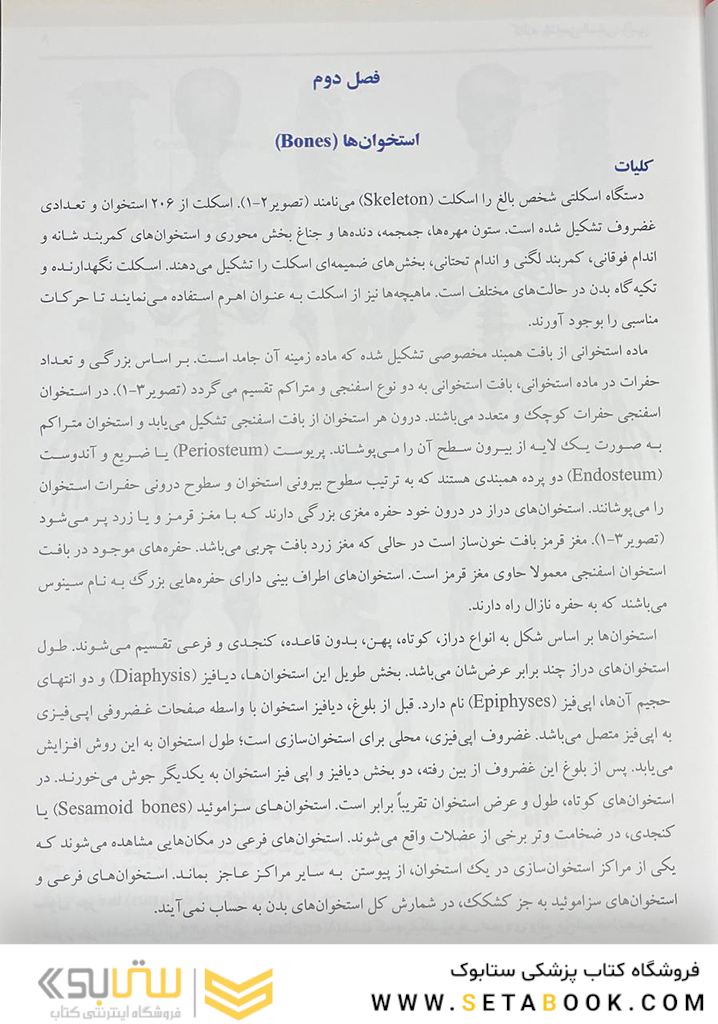 فصل دوم
استخوان‌ها (Bones)
کلیات
دستگاه اسکلتی شخص بالغ را اسکلت (Skeleton) می‌نامند (تصویر۲-۱). اسکلت از ۲۰۶ استخوان و تعدادی
غضروف تشکیل شده است. ستون مهره‌ها، جمجمه، دنده‌ها و جناغ بخش محوری و استخوان‌های کمربند شانه و
اندام فوقانی، کمربند لگنی و اندام تحتانی، بخش‌های ضمیمه‌ای اسکلت را تشکیل می‌دهند. اسکلت نگهدارنده و
تکیه‌گاه بدن در حالت‌های مختلف است. ماهیچه‌ها نیز از اسکلت به عنوان اهرم استفاده می‌نمایند تا حرکات
مناسبی را بوجود آورند.
ماده استخوانی از بافت همبند مخصوصی تشکیل شده که ماده زمینه آن جامد است. بر اساس بزرگی و تعداد
حفرات در ماده استخوانی، بافت استخوانی به دو نوع اسفنجی و متراکم تقسیم می‌گردد (تصویر۳-۱). در استخوان
اسفنجی حفرات کوچک و متعدد می‌باشند. درون هر استخوان از بافت اسفنجی تشکیل می‌یابد و استخوان متراکم
به صورت یک لایه از بیرون سطح آن را می‌پوشاند. پریوست (Periosteum) یا ضریع و آندوست
(Endosteum) دو پرده همبندی هستند که به ترتیب سطوح بیرونی استخوان و سطوح درونی حفرات استخوان
را می‌پوشانند. استخوان‌های دراز در درون خود حفره مغزی بزرگی دارند که با مغز قرمز و یا زرد پر می‌شود
(تصویر۳-۱). مغز قرمز بافت خون‌ساز است در حالی که مغز زرد بافت چربی می‌باشد. حفره‌های موجود در بافت
استخوان اسفنجی معمولا حاوی مغز قرمز است. استخوان‌های اطراف بینی دارای حفره‌هایی بزرگ به نام سینوس
می‌باشند که به حفره نازال راه دارند.
استخوان‌ها بر اساس شکل به انواع دراز، کوتاه، پهن، بدون قاعده، کنجدی و فرعی تقسیم می‌شوند. طول
استخوان‌های دراز چند برابر عرض‌شان می‌باشد. بخش طویل این استخوان‌ها، دیافیز (Diaphysis) و دو انتهای
حجیم آن‌ها، اپی‌فیز (Epiphyses) نام دارد. قبل از بلوغ، دیافیز استخوان با واسطه صفحات غضروفی اپی‌فیزی
به اپی‌فیز متصل می‌باشد. غضروف اپی‌فیزی، محلی برای استخوان‌سازی است؛ طول استخوان به این روش افزایش
می‌یابد. پس از بلوغ این غضروف از بین رفته، دو بخش دیافیز و اپی فیز استخوان به یکدیگر جوش می‌خورند. در
استخوان‌های کوتاه، طول و عرض استخوان تقریباً برابر است. استخوان‌های سزاموئید (Sesamoid bones) یا
کنجدی، در ضخامت وتر برخی از عضلات واقع می‌شوند. استخوان‌های فرعی در مکان‌هایی مشاهده می‌شوند که
یکی از مراکز استخوان‌سازی در یک استخوان، از پیوستن به سایر مراکز عاجز بماند. استخوان‌های فرعی و
استخوان‌های سزاموئید به جز کشکک، در شمارش کل استخوان‌های بدن به حساب نمی‌آیند.
فروشگاه کتاب پزشکی ستابوک
WWW.SETABOOK.COM
ستابوک
فروشگاه اینترنتی کتاب